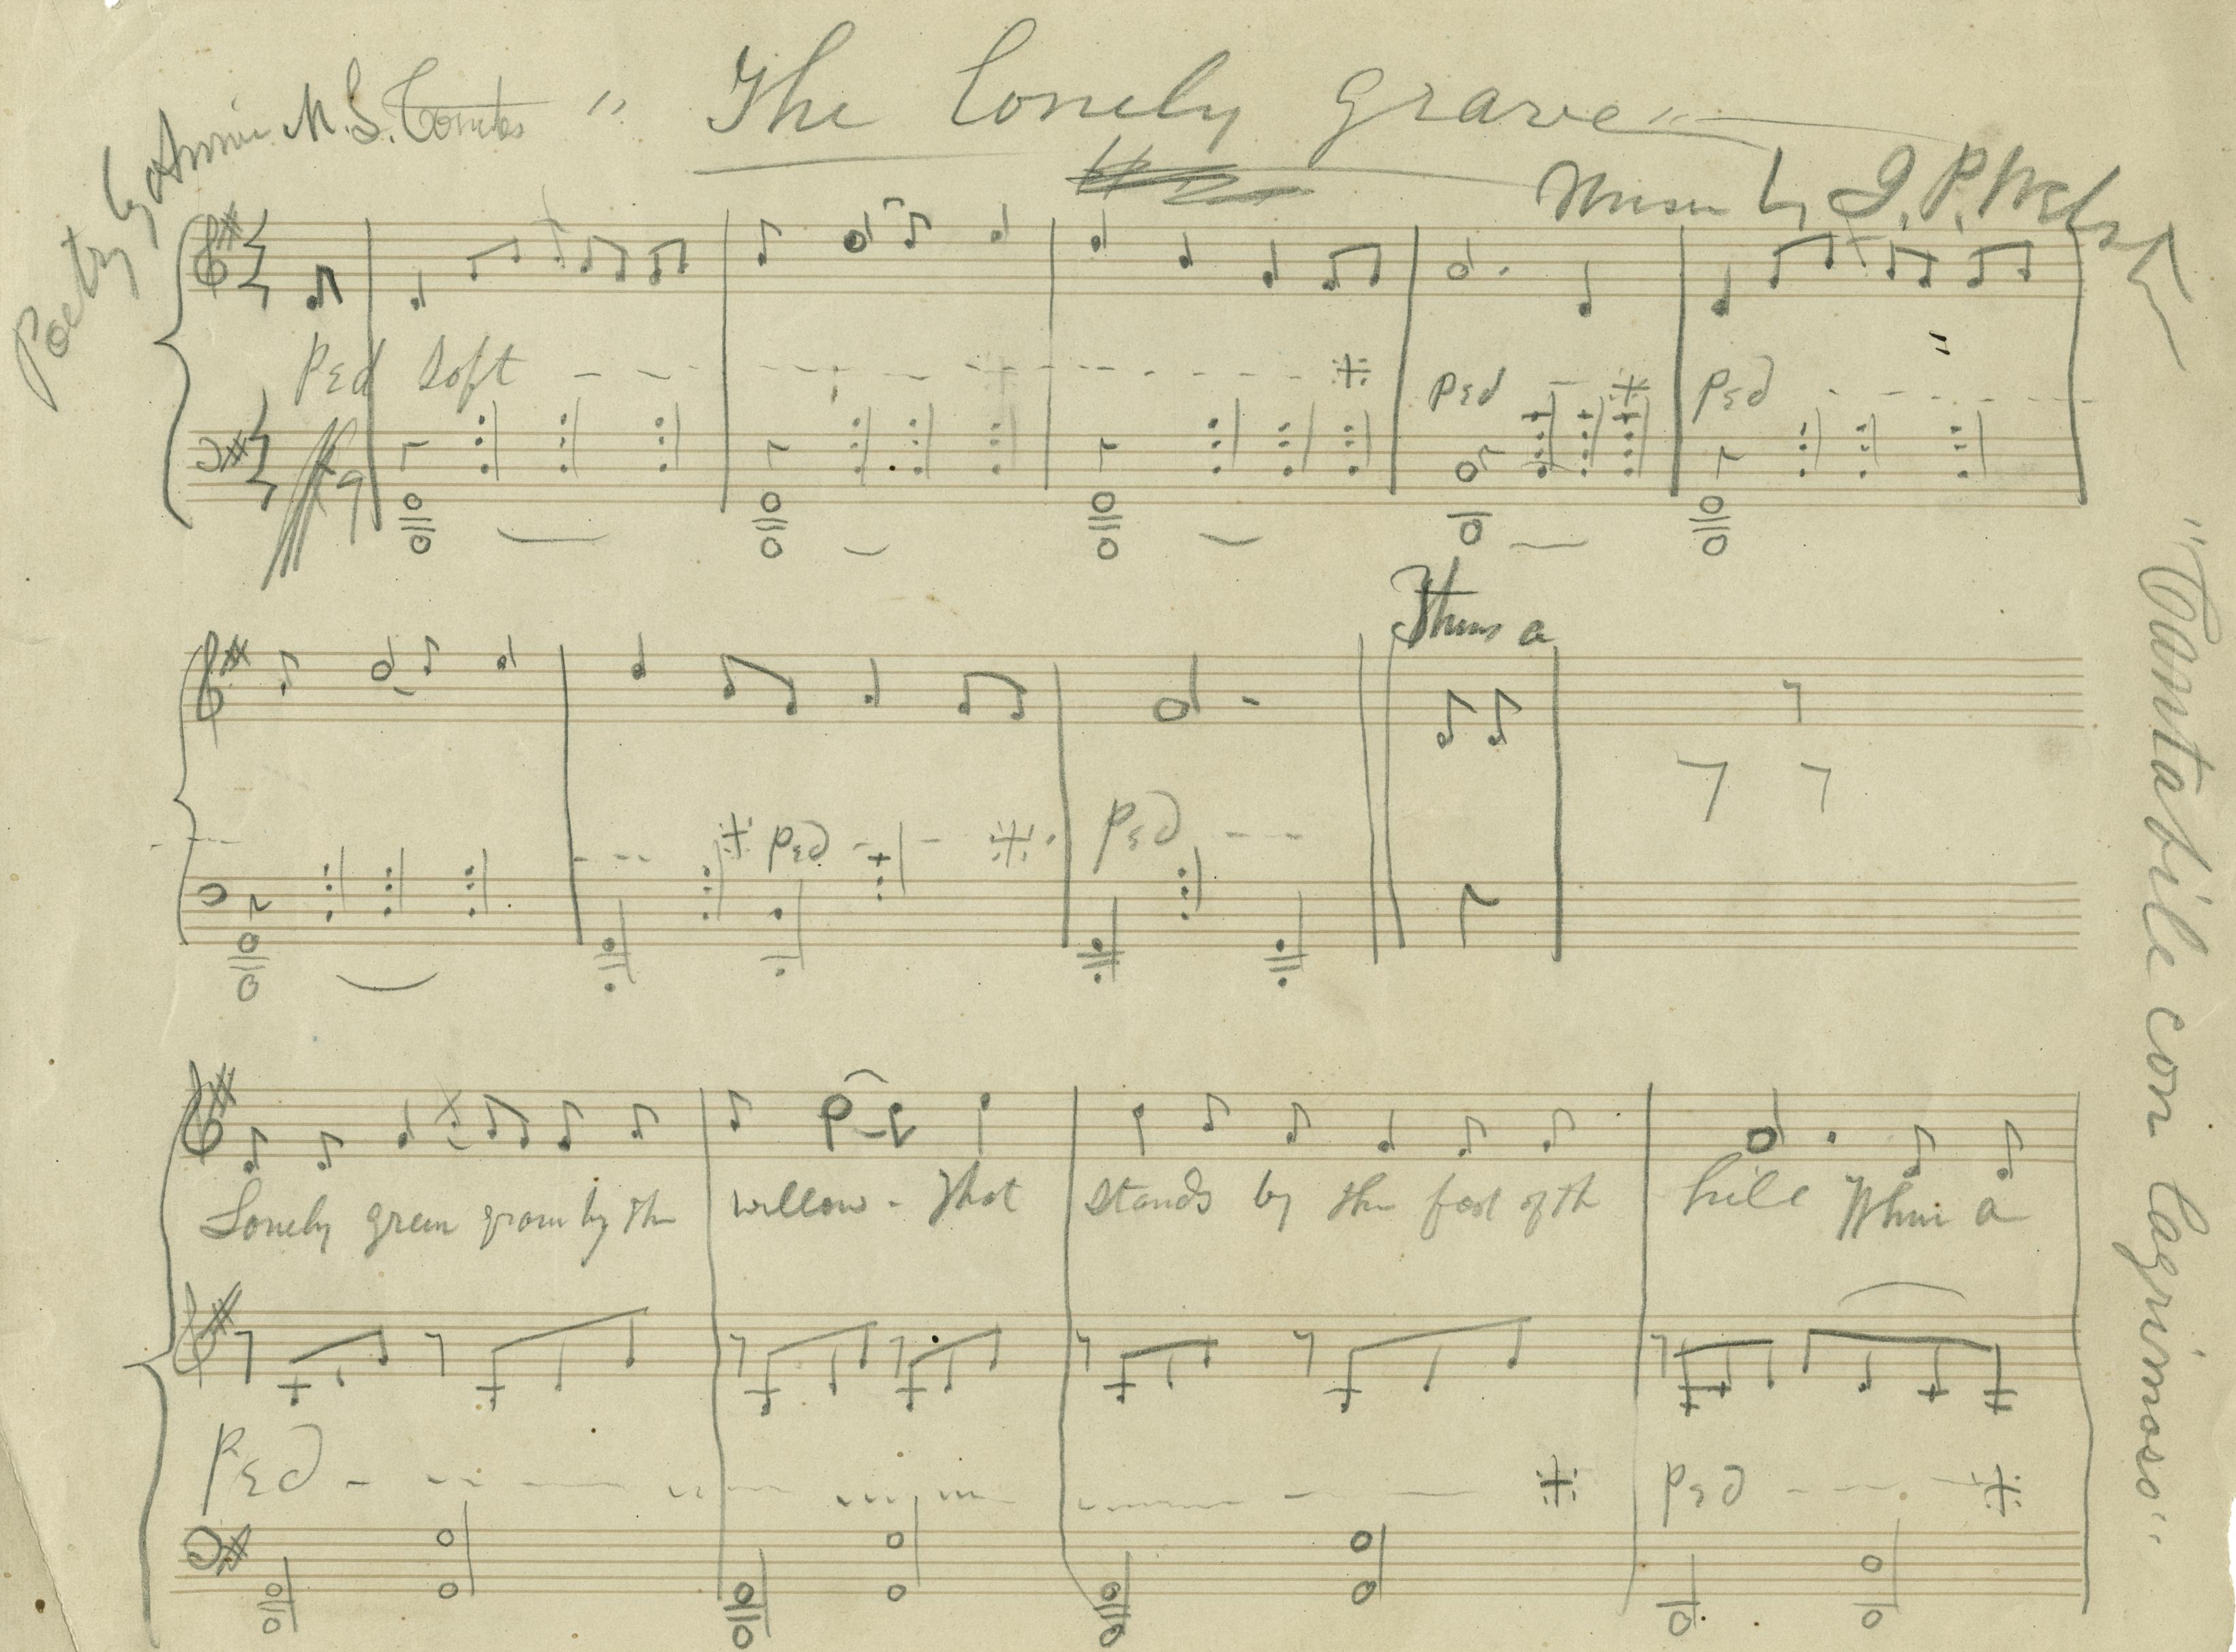 "The Lonely grave"
Poetry by Annie M. S. Combs
Music by J. P. Webster
Ped Soft
Ped
Ped
Thers a
Ped
Ped
Lonely green grave by the willow - That stands by the foot of th hill Wher a
Ped
Ped
"Cantabile con Lagrimoso"